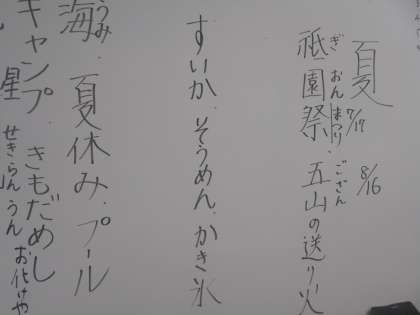 夏
7/17 8/16
祇園祭・五山の送り火
ぎおんまつり ござん
すいか、そうめん、かき氷
うみ
海・夏休み・プール
キャンプ・きもだめし
星 せきらんうん お化けや